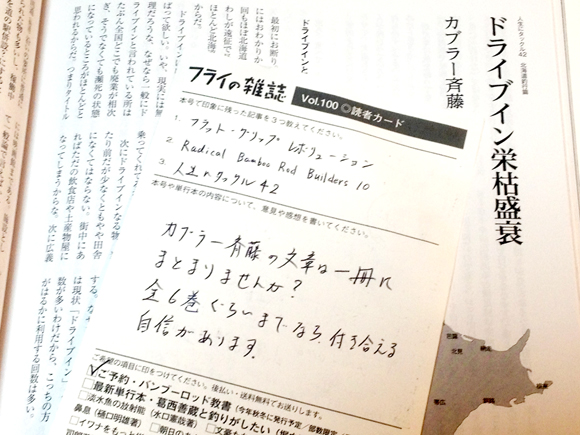 人生にタックル42 北海道釣行篇
ドライブイン栄枯盛衰
カブラー斉藤
ドライブインと
最初にお断り
にはおわかりか
回もほぼ北海道
わしが遠征で
ほとんど北海
からだ。
ドライブイン
ばって欲しい。いや、現実には無
理だろうな。なぜなら一般にド
ライブインと言われている所は
たぶん全国どこでも廃業が相次
ぎ、そうでなくても瀕死の状態
になっているところがほとんどと
思われるからだ。つまりタイトル
乗ってくれて
次にドライブインなる物
たり前だが少なくともやや田舎
になくてはならない。街中にあ
ればただの飲食店や土産物屋に
なってしまうからな。次に広義
は現状「ドライブイン」
数が多いわけだから、こっちの方
がはるかに利用する回数は多い。
フライの雑誌 Vol.100◎読者カード
本号で印象に残った記事を3つ教えてください。
1. フラット・グリップ レボリューション
2. Radical Bamboo Rod Builders 10
3. 人生のタックル 42
本号や単行本の内容について、意見や感想を書いてください。
カブラー斉藤の文章は一冊に
まとまりませんか?
全6巻ぐらいまでなら、付き合える
自信があります。
ご希望の項目に印をつけてください。後払い・送料無料でお送りします。
✓ご予約・バンブーロッド教書(今年秋冬に発行予定/部数限定
□最新単行本・葛西善蔵と釣りがしたい
□淡水魚の放射能(水口憲哉著)
鼻息(樋口明雄著)
北見
網走
帯広
釧路
根室